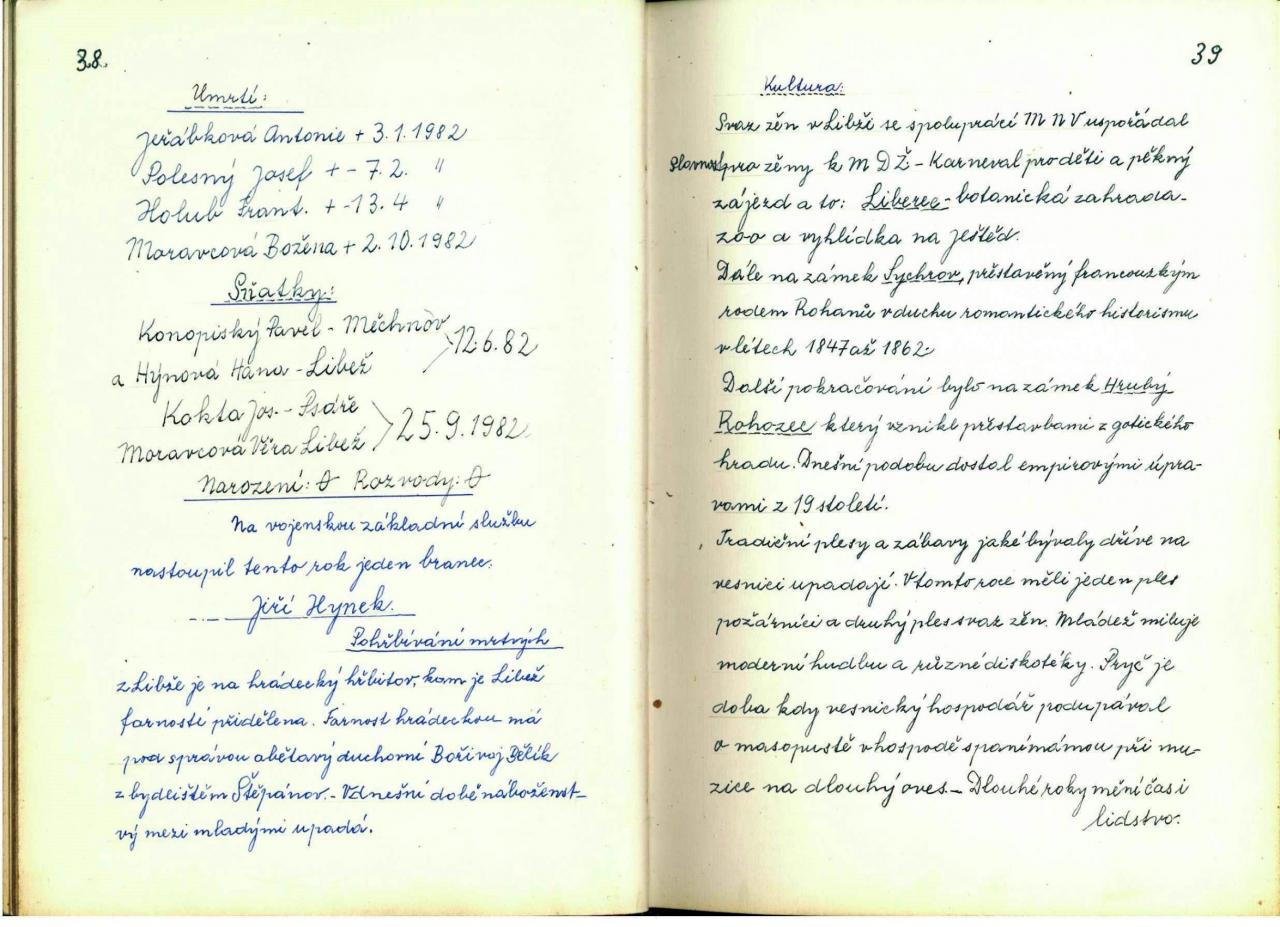 38.
Úmrtí:
Jeřábková Antonie + 3.1.1982
Polesný Josef + - 7.2. "
Holub Frant. + - 13.4 "
Moravcová Božena + 2.10.1982
Sňatky:
Konopiský Pavel - Měchnov
12.6.82
a Hýnová Hana - Libež
Kokta Jos. - Psáře
25.9.1982
Moravcová Věra Libež
Narození: 0 Rozvody: 0
Na vojenskou základní službu
nastoupil tento rok jeden branec.
Jiří Hynek.
Pohřbívání mrtvých
z Libže je na hrádecký hřbitov, kam je Libež
farností přidělena. Farnost hrádeckou má
pod správou obětavý duchovní Bořivoj Bělík
z bydlištěm Štěpánov. - V dnešní době náboženst-
vý mezi mladými upadá.
39
Kultura:
Svaz žěn v Libži se spoluprácí M N V uspořádal
Slavnost pro žěny k M D Ž - Karneval pro děti a pěkný
zájezd a to: Liberec - botanická zahrada -
zoo a vyhlídka na Ještěd.
Dále na zámek Sychrov, přestavěný francouzským
rodem Rohanů v duchu romantického historismu
v létech 1847 až 1862.
Další pokračování bylo na zámek Hrubý
Rohozec který vznikl přestavbami z gotického
hradu. Dnešní podobu dostal empirovými úpra-
vami z 19 století.
Tradiční plesy a zábavy jaké bývaly dříve na
vesnici upadají. V tomto roce měli jeden ples
požárníci a druhý ples svaz žěn. Mládež miluje
moderní hudbu a různé diskotéky. Pryč je
doba kdy vesnický hospodář podupával
o masopustě v hospodě s panímámou při mu-
zice na dlouhý oves. - Dlouhé roky mění čas i
lidstvo.